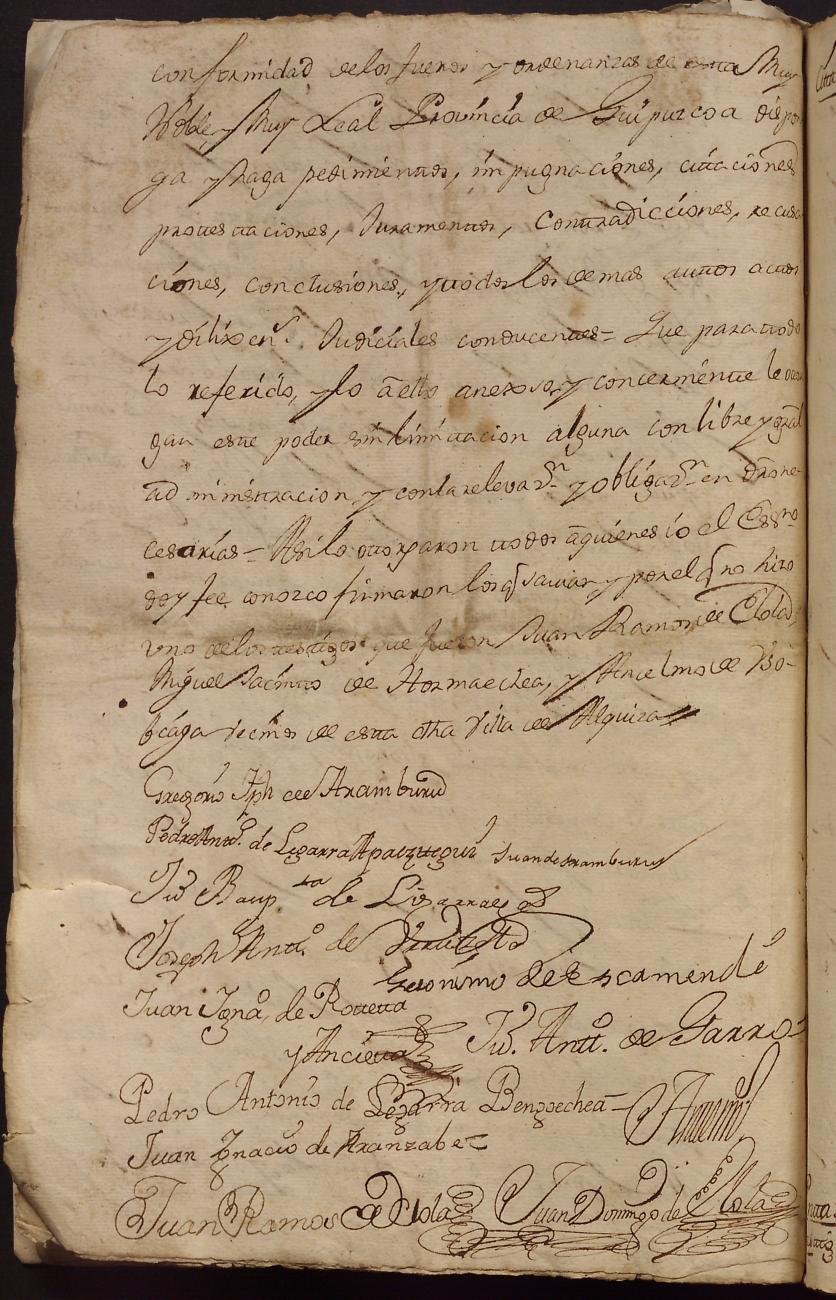 conformidad delos fueros y ordenanzas de esta Muy
Noble, y Muy Leal Provincia de Guipuzcoa dispon
ga y haga pedimientos, impugnaciones, citaciones
protestaciones, Juramentos, Contradicciones, recusa
ciones, conclusiones, y todos los demas autos actos
y dilixens. Judiciales conducentes = Que para todo
lo referido, y lo a ello anexo, y concerniente le otor
gan este poder sin limitacion alguna con libre y gral
administracion y con la relevaon y obligaon en dro ne-
cesarias = Asi lo otorgaron todos a quienes io el Essno
doy fee conozco firmaron los q savian y por el q no hizo
uno delos testigos que fueron Juan Ramon de Elola,
Miguel Jacinto de Hormaechea, y Ancelmo de
vecinos de esta dha Villa de Alquiza
Gregorio Jph de Aramburu
Pedro Anto. de Legarra Apaiztegui Juan de Aramburu
Ju Baupta de Lizarraga
Joseph Antto. de
Geronimo de Escamendi
Juan Igno. de Rotetta
y Ancieta Ju. Antto. de Garro
Pedro Antonio de Legarra Bengoechea
Antemi
Juan Ignacio de Aranzabe
Juan Ramos de Elola Juan Domingo de Elola